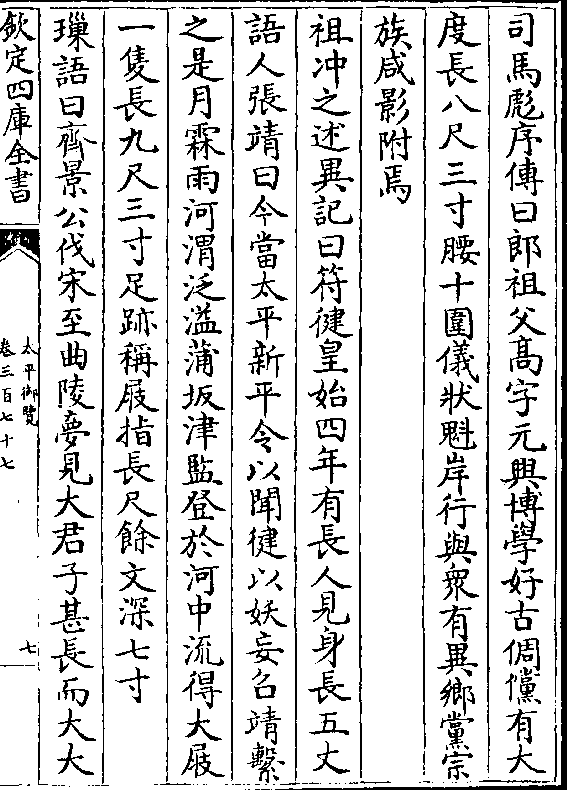 司馬彪序傳曰郎祖父髙字元興博學好古倜儻有大
度長八尺三寸腰十圍儀狀魁岸行與衆有異鄉黨宗
族咸影附焉
祖沖之述異記曰符健皇始四年有長人見身長五丈
語人張靖曰今當太平新平令以聞健以妖妄召靖繫
之是月霖雨河渭泛溢蒲坂津監登於河中流得大屐
一隻長九尺三寸足跡稱屐指長尺餘文深七寸
璅語曰齊景公伐宋至曲陵夢見大君子甚長而大大
欽定四庫全書
太平御覽
卷三百七十七
七